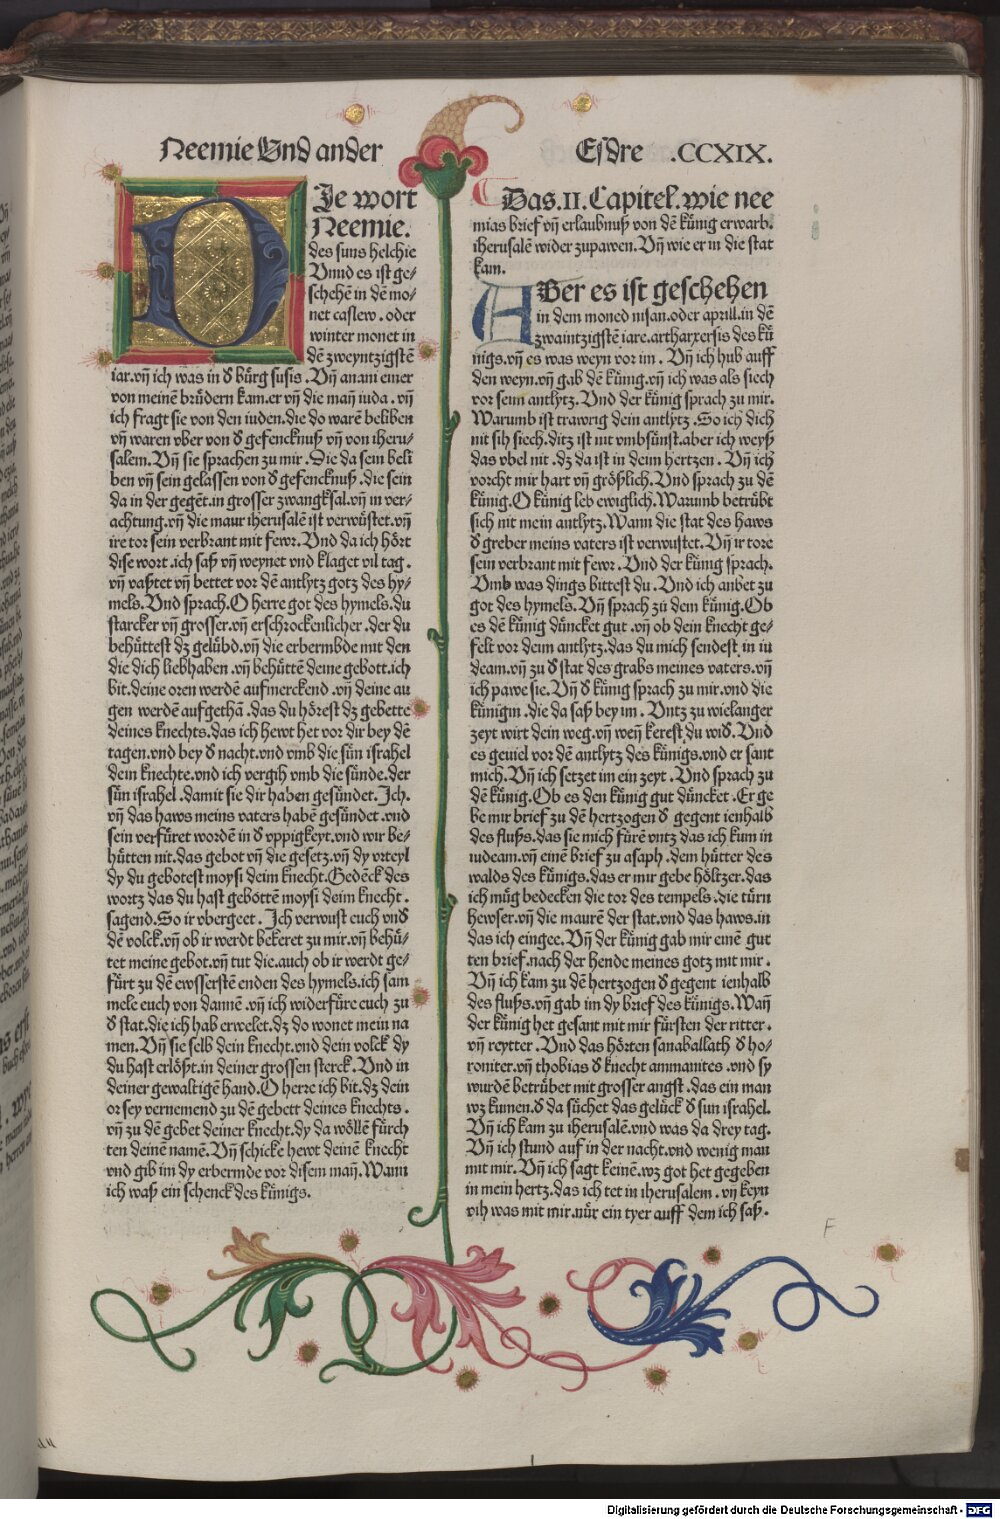 Neemie Vnd ander
Esdre .CCXIX.
DJe wort
Neemie.
des suns helchie
Vnnd es ist ge⸗
schehẽ in dẽ mo⸗
net caslew . oder
winter monet in
dẽ zweyntzigstẽ
iar.vñ ich was in d̕ bürg susis . Vñ anani einer
von meinẽ brüdern kam.er vñ die mañ iuda . vñ
ich fragt sie von den iuden.die do warẽ beliben
vñ waren vber von d̕ gefencknuß vñ von iheru⸗
salem.Vñ sie sprachen zu mir . Die da sein beli
ben vñ sein gelassen von d̕ gefencknuß .die sein
da in der gegẽt.in grosser zwangksal.vñ in ver⸗
achtung.vñ die maur iherusalẽ ist verwüstet.vñ
ire tor sein verbrant mit fewr.Vnd da ich hört
dise wort .ich saß vñ weynet vnd klaget vil tag .
vñ vaßtet vñ bettet vor dẽ antlytz gotz des hy⸗
mels.Vnd sprach.O herre got des hymels.du
starcker vñ grosser.vñ erschrockenlicher .der du
behüttest dz gelübd.vñ die erbermbde mit den
die dich liebhaben .vñ behüttẽ deine gebott.ich
bit.deine oren werdẽ aufmerckend .vñ deine au
gen werdẽ aufgethã .das du hörest dz gebette
deines knechts.das ich hewt het vor dir bey dẽ
tagen.vnd bey d̕ nacht.vnd vmb die sün israhel
dein knechte.vnd ich vergih vmb die sünde.der
sün israhel .damit sie dir haben gesündet.Jch.
vñ das haws meins vaters habẽ gesündet .vnd
sein verfüret wordẽ in d̕ vppigkeyt.vnd wir be⸗
hütten nit.das gebot vñ die gesetz.vñ dy vrteyl
dy du gebotest moysi deim knecht.Gedẽck des
wortz das du hast geböttẽ moysi deim knecht .
sagend.So ir vbergeet . Jch verwust euch vnd̕
dẽ volck.vñ ob ir werdt bekeret zu mir.vñ behü⸗
tet meine gebot.vñ tut die.auch ob ir werdt ge⸗
fürt zu dẽ ewsserstẽ enden des hymels.ich sam
mele euch von dannẽ .vñ ich widerfüre euch zu
d̕ stat.die ich hab erwelet.dz do wonet mein na
men.Vñ sie selb dein knecht.vnd dein volck dy
du hast erlößt.in deiner grossen sterck . Vnd in
deiner gewaltigẽ hand.O herre ich bit.dz dein
or sey vernemend zu dẽ gebett deines knechts .
vñ zu dẽ gebet deiner knecht.dy da wöllẽ fürch
ten deinẽ namẽ.Vñ schicke hewt deinẽ knecht
vnd gib im dy erbermde vor disem mañ.Wann
ich waß ein schenck des künigs.
Das.II.Capitel.wie nee
mias brief vñ erlaubnuß von dẽ künig erwarb.
iherusalẽ wider zupawen.Vñ wie er in die stat
kam.
ABer es ist geschehen
in dem moned nisan.oder aprill.in dẽ
zwaintzigstẽ iare.artharxersis des kü
nigs.vñ es was weyn vor im . Vñ ich hub auff
den weyn.vñ gab dẽ künig.vñ ich was als siech
vor seim antlytz. Vnd der künig sprach zu mir.
Warumb ist trawrig dein antlytz .So ich dich
nit sih siech.ditz ist nit vmbsünst.aber ich weyß
das vbel nit .dz da ist in deim hertzen . Vñ ich
vorcht mir hart vñ größlich. Vnd sprach zu dẽ
künig.O künig leb ewiglich.Warumb betrübt
sich nit mein antlytz.Wann die stat des haws
d̕ greber meins vaters ist verwustet.Vñ ir tore
sein verbrant mit fewr .Vnd der künig sprach.
Vmb was dings bittest du .Vnd ich anbet zu
got des hymels.Vñ sprach zü dem künig.Ob
es dẽ künig düncket gut .vñ ob dein knecht ge⸗
felt vor deim antlytz.das du mich sendest in iu
deam.vñ zu d̕ stat des grabs meines vaters.vñ
ich pawe sie.Vñ d̕ künig sprach zu mir.vnd die
künigin .die da saß bey im . Vntz zu wielanger
zeyt wirt dein weg.vñ weñ kerest du wid̕. Vnd
es geuiel vor dẽ antlytz des künigs.vnd er sant
mich.Vñ ich setzet im ein zeyt . Vnd sprach zu
dẽ künig.Ob es den künig gut düncket .Er ge
be mir brief zu dẽ hertzogen d̕ gegent ienhalb
des fluß.das sie mich fürẽ vntz das ich kum in
iudeam.vñ einẽ brief zu asaph .dem hütter des
walds des künigs.das er mir gebe höltzer.das
ich müg bedecken die tor des tempels.die türn
hewser.vñ die maurẽ der stat.vnd das haws.in
das ich eingee.Vñ der künig gab mir einẽ gut
ten brief.nach der hende meines gotz mit mir .
Vñ ich kam zu dẽ hertzogen d̕ gegent ienhalb
des fluß.vñ gab im dy brief des künigs.Wañ
der künig het gesant mit mir fürsten der ritter .
vñ reytter . Vnd das hörten sanaballath d̕ ho⸗
roniter.vñ thobias d̕ knecht ammanites .vnd sy
wurdẽ betrübet mit grosser angst .das ein man
wz kumen.d̕ da süchet das gelück d̕ sun israhel.
Vñ ich kam zu iherusalẽ.vnd was da drey tag.
Vñ ich stund auf in der nacht.vnd wenig man
mit mir. Vñ ich sagt keinẽ.wz got het gegeben
in mein hertz.das ich tet in iherusalem . vñ keyn
vih was mit mir.nür ein tyer auff dem ich saß .
F
Digitalisierung gefördert durch die Deutsche Forschungsgemeinschaft - DFG